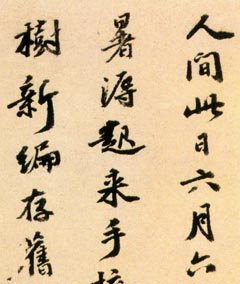 人間此日六月六
暑溽起来手
樹新編存舊